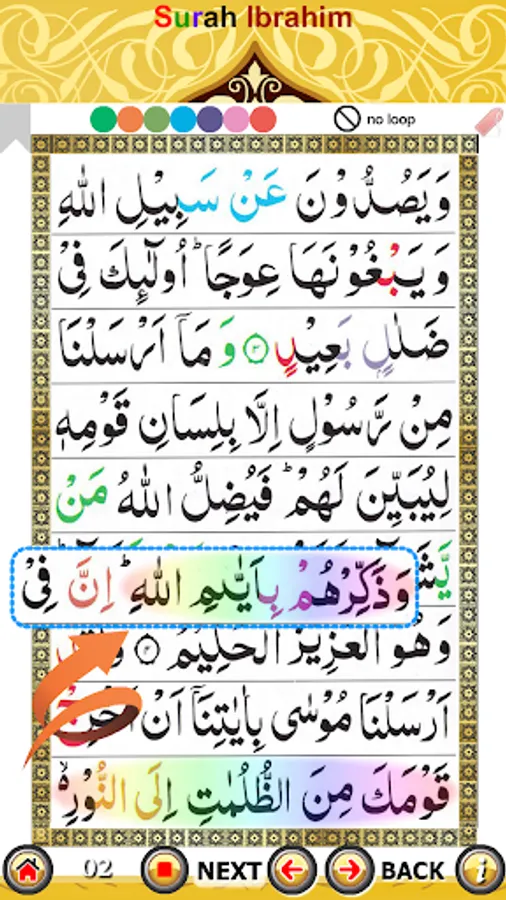 Surah Ibrahim
no loop
وَيَصُدُّوْنَ عَنْ سَبِيْلِ اللّٰهِ
وَيَبْغُوْنَهَا عِوَجًا ؕ اُولٰٓئِكَ فِىْ
ضَلٰلٍۢ بَعِيْدٍ ۝۳ وَ مَاۤ اَرْسَلْنَا
مِنْ رَّسُوْلٍ اِلَّا بِلِسَانِ قَوْمِهٖ
لِيُبَيِّنَ لَهُمْ ؕ فَيُضِلُّ اللّٰهُ مَنْ
وَذَكِّرْهُمْ بِاَيّٰٮمِ اللّٰهِ ؕ اِنَّ فِىْ
وَهُوَ الْعَزِيْزُ الْحَكِيْمُ ۝۴
اَرْسَلْنَا مُوْسٰى بِاٰيٰتِنَاۤ اَنْ اَخْرِجْ
قَوْمَكَ مِنَ الظُّلُمٰتِ اِلَى النُّوْرِ ۙ
02 NEXT BACK i